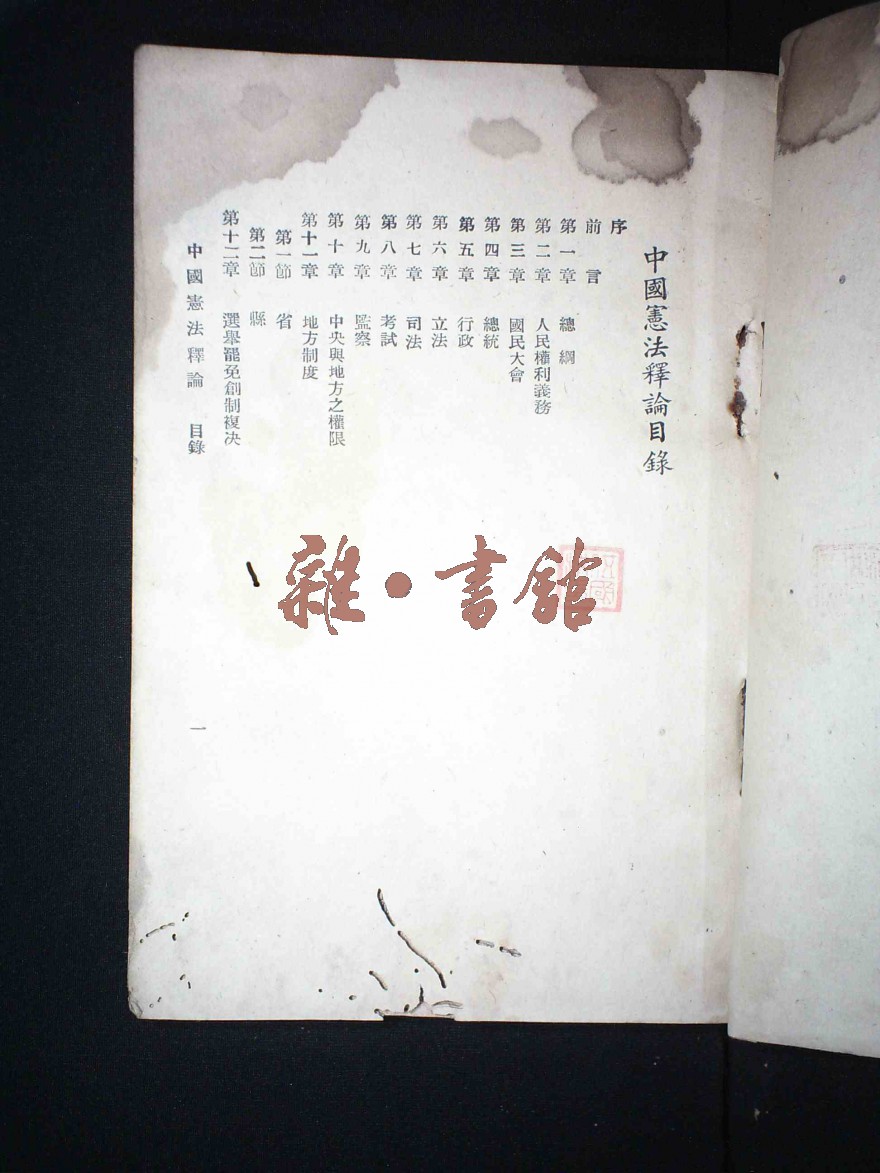 中國憲法釋論目錄
序
前言
第一章 總綱
第二章 人民權利義務
第三章 國民大會
第四章 總統
第五章 行政
第六章 立法
第七章 司法
第八章 考試
第九章 監察
第十章 中央與地方之權限
第十一章 地方制度
第一節 省
第二節 縣
第十二章 選舉罷免創制複决
中國憲法釋論 目錄
一
雜·書館